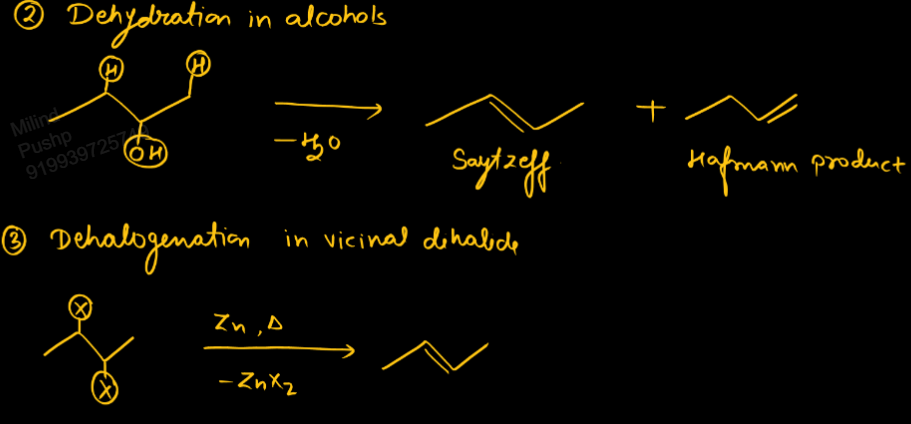 ② Dehydration in alcohols
H H
OH
-H₂O
+
Saytzeff
Hofmann product
Milind
Pushp
③ Dehalogenation in vicinal dihalide
X
X
Zn, Δ
-ZnX₂